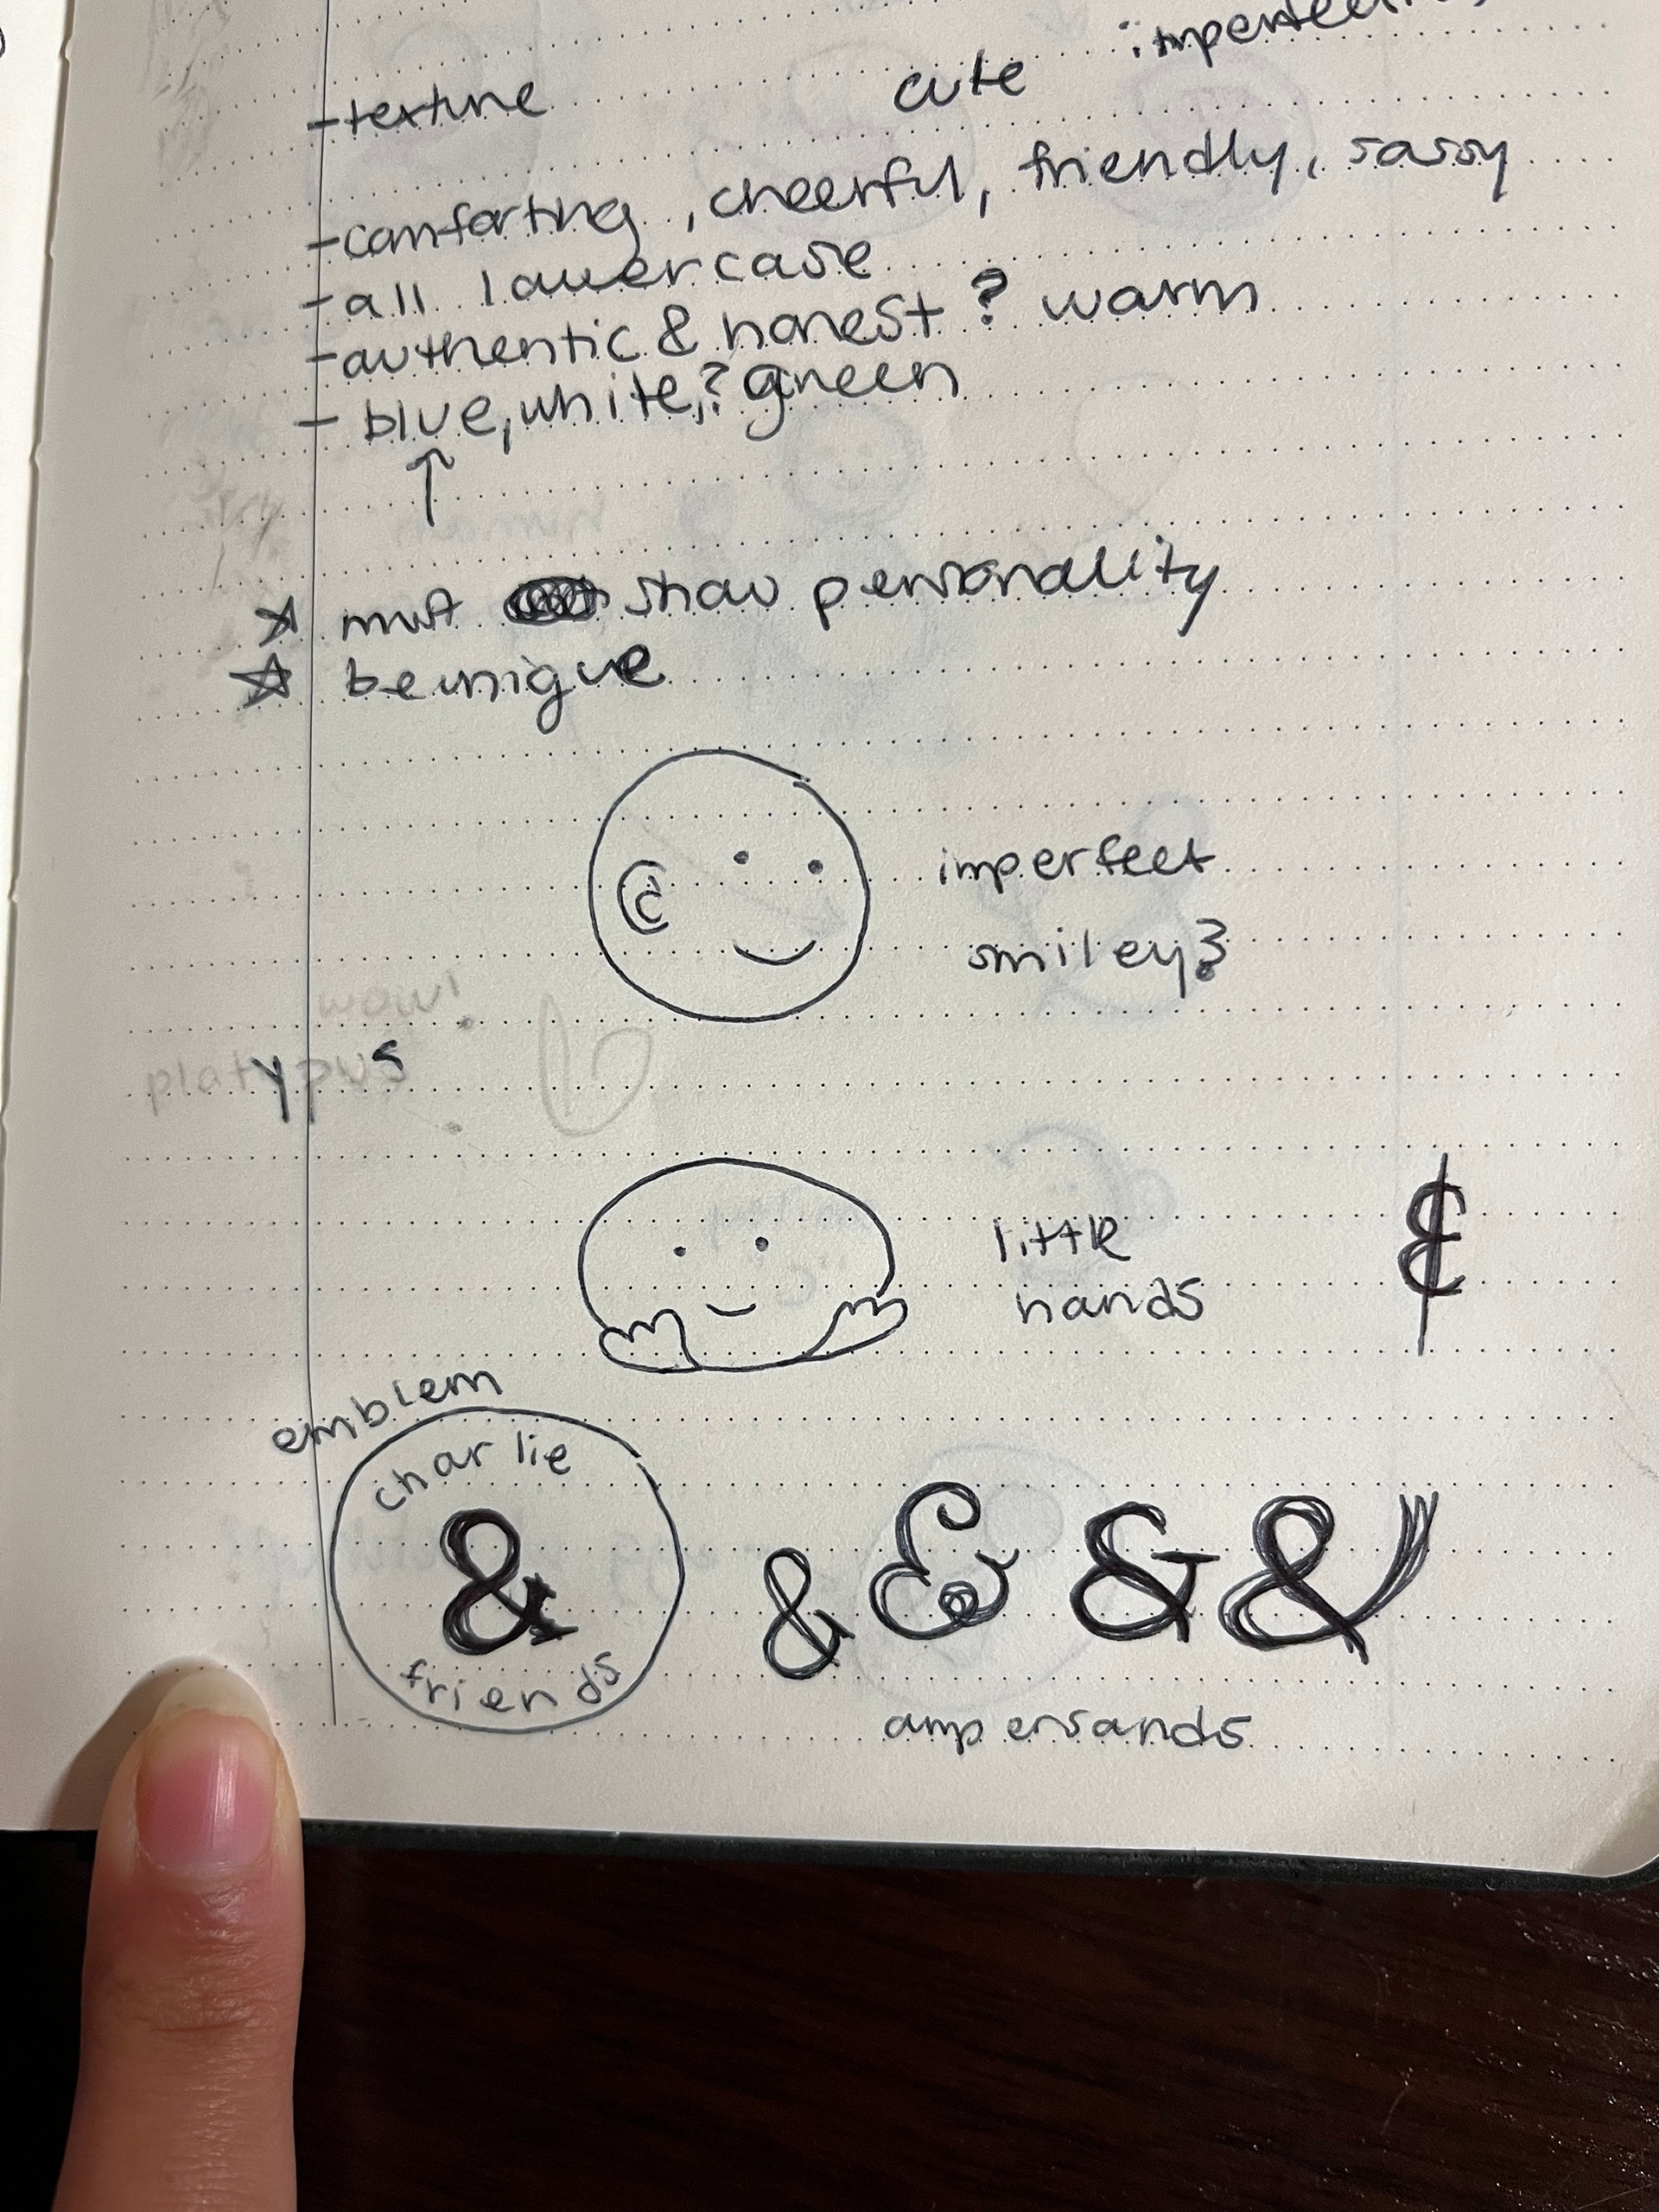 -texture cute
-comforting, cheerful, friendly, sassy
-all lowercase
-authentic & honest? warm
- blue, white,? green
must show personality
be unique
imperfect
smiley?
wow!
platypus
little
hands
emblem
charlie
&
friends
& & & &
ampersands